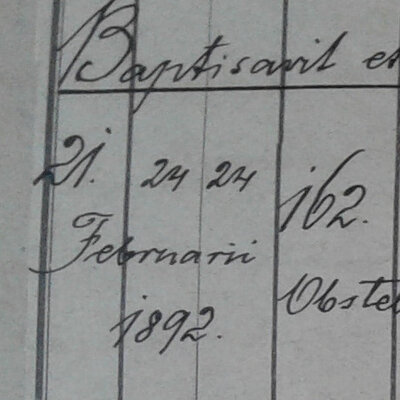 Baptisavit et
21. 24 24 162.
Februarii
1892. Obste